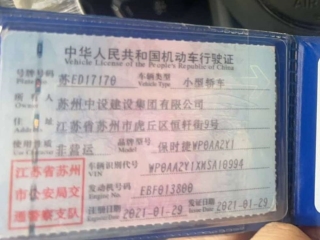 中华人民共和国机动车行驶证
Vehicle License of the People's Republic of China
号牌号码 苏ED17170 车辆类型 小型轿车
Plate No. Vehicle Type
所有人 苏州中设建设集团有限公司
Owner
住址 江苏省苏州市虎丘区恒轩街9号
Address
使用性质 非营运 品牌型号 保时捷WP0AA2Y1
Use Character Model
江苏省苏州
市公安局交
通警察支队
车辆识别代号 WP0AA2Y1XMSA10994
VIN
发动机号码 EBF013800
Engine No.
注册日期 2021-01-29 发证日期 2021-01-29
Register Date Issue Date